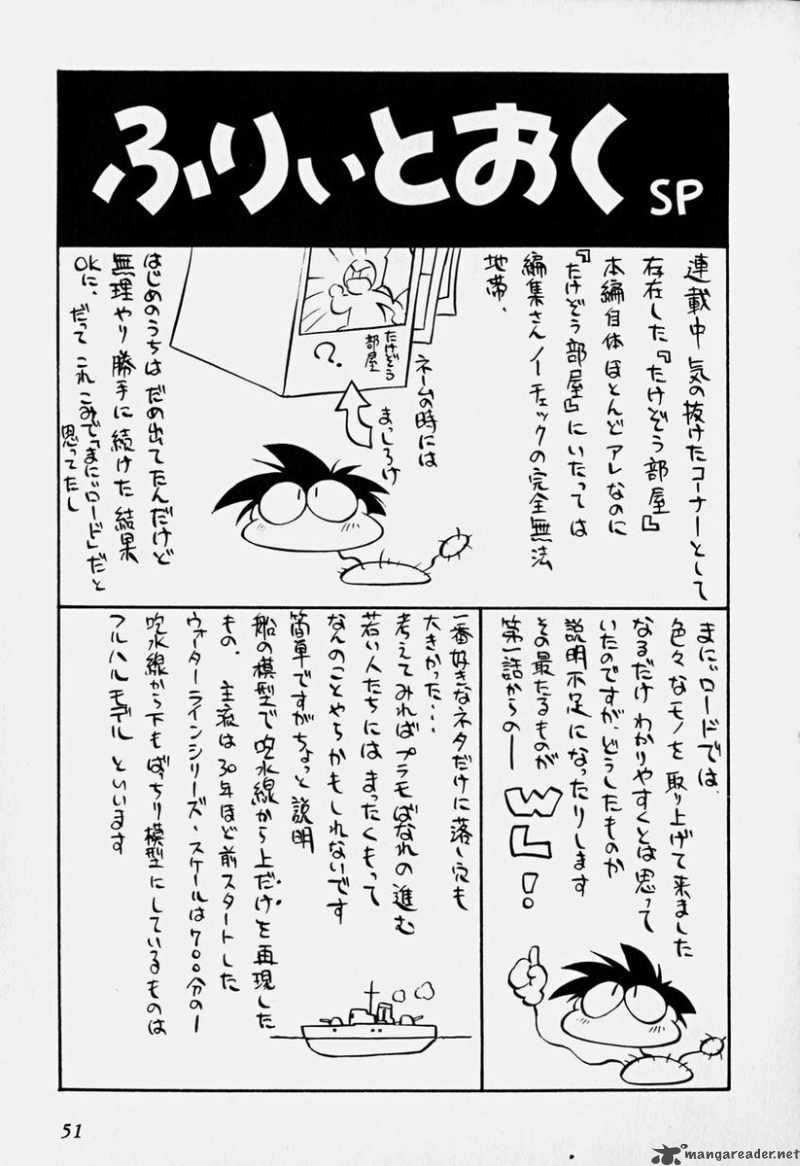 ふりぃとおく SP
連載中 気の抜けたコーナーとして
存在した『たけぞう部屋』
本編自体ほとんどアレなのに
『たけぞう部屋』にいたっては
編集さんノーチェックの完全無法
地帯、
ネームの時には
まっしろけ
たけぞう
部屋
?
はじめのうちはだめ出てたんだけど
無理やり勝手に続けた結果
OKに、
だって これ こみで「まにぃロード」だと
思ってたし
まにぃロードでは、
色々なモノを取り上げて来ました
なるだけ わかりやすくとは思って
いたのですが、どうしたものか
説明不足になったりします
その最たるものが
第一話からのー
WL!
一番好きなネタだけに落し穴も
大きかった・・・
考えてみれば プラモばなれの進む
若い人たちには まったくもって
なんのことやらかもしれないです
簡単ですがちょっと説明
船の模型で 吹水線から上だけを再現した
もの、主流は30年ほど前スタートした
ウォーターラインシリーズ・スケールは700分の一
吹水線から下もばっちり模型にしているものは
フルハルモデル といいます
51
mangareader.net